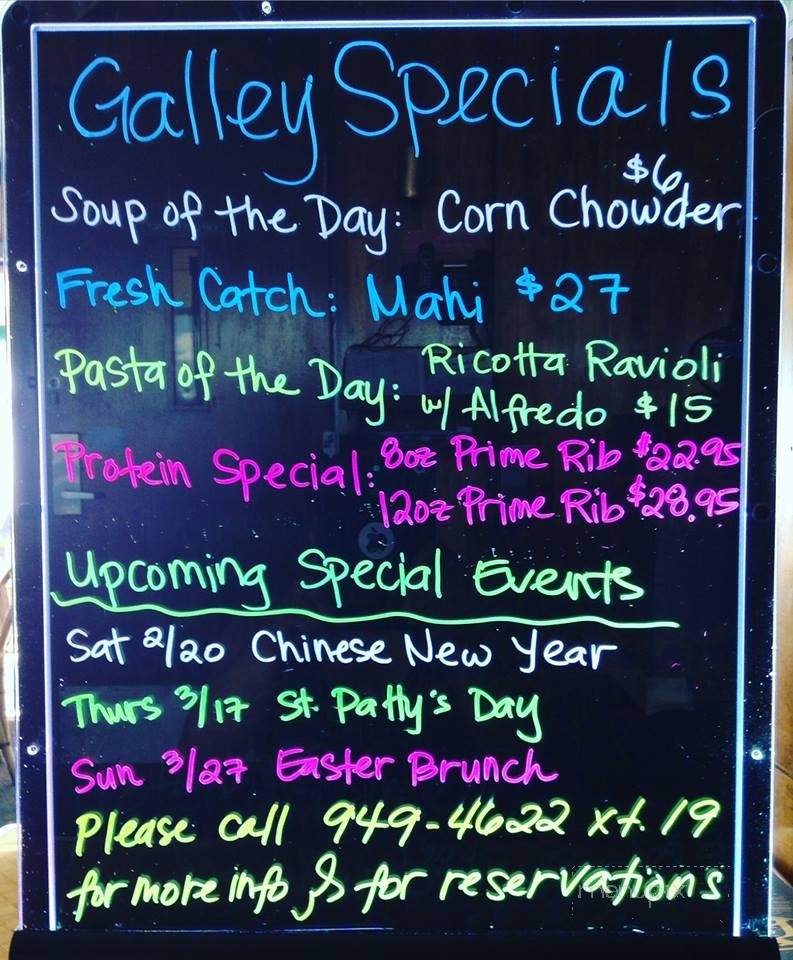 Galley Specials
$6
Soup of the Day: Corn Chowder
Fresh Catch: Mahi $27
Pasta of the Day: Ricotta Ravioli
w/ Alfredo $15
Protein Special: 8oz Prime Rib $22.95
12oz Prime Rib $28.95
Upcoming Special Events
Sat 2/20 Chinese New Year
Thurs 3/17 St. Patty's Day
Sun 3/27 Easter Brunch
Please call 949-4622 xt. 19
for more info & for reservations
menupix